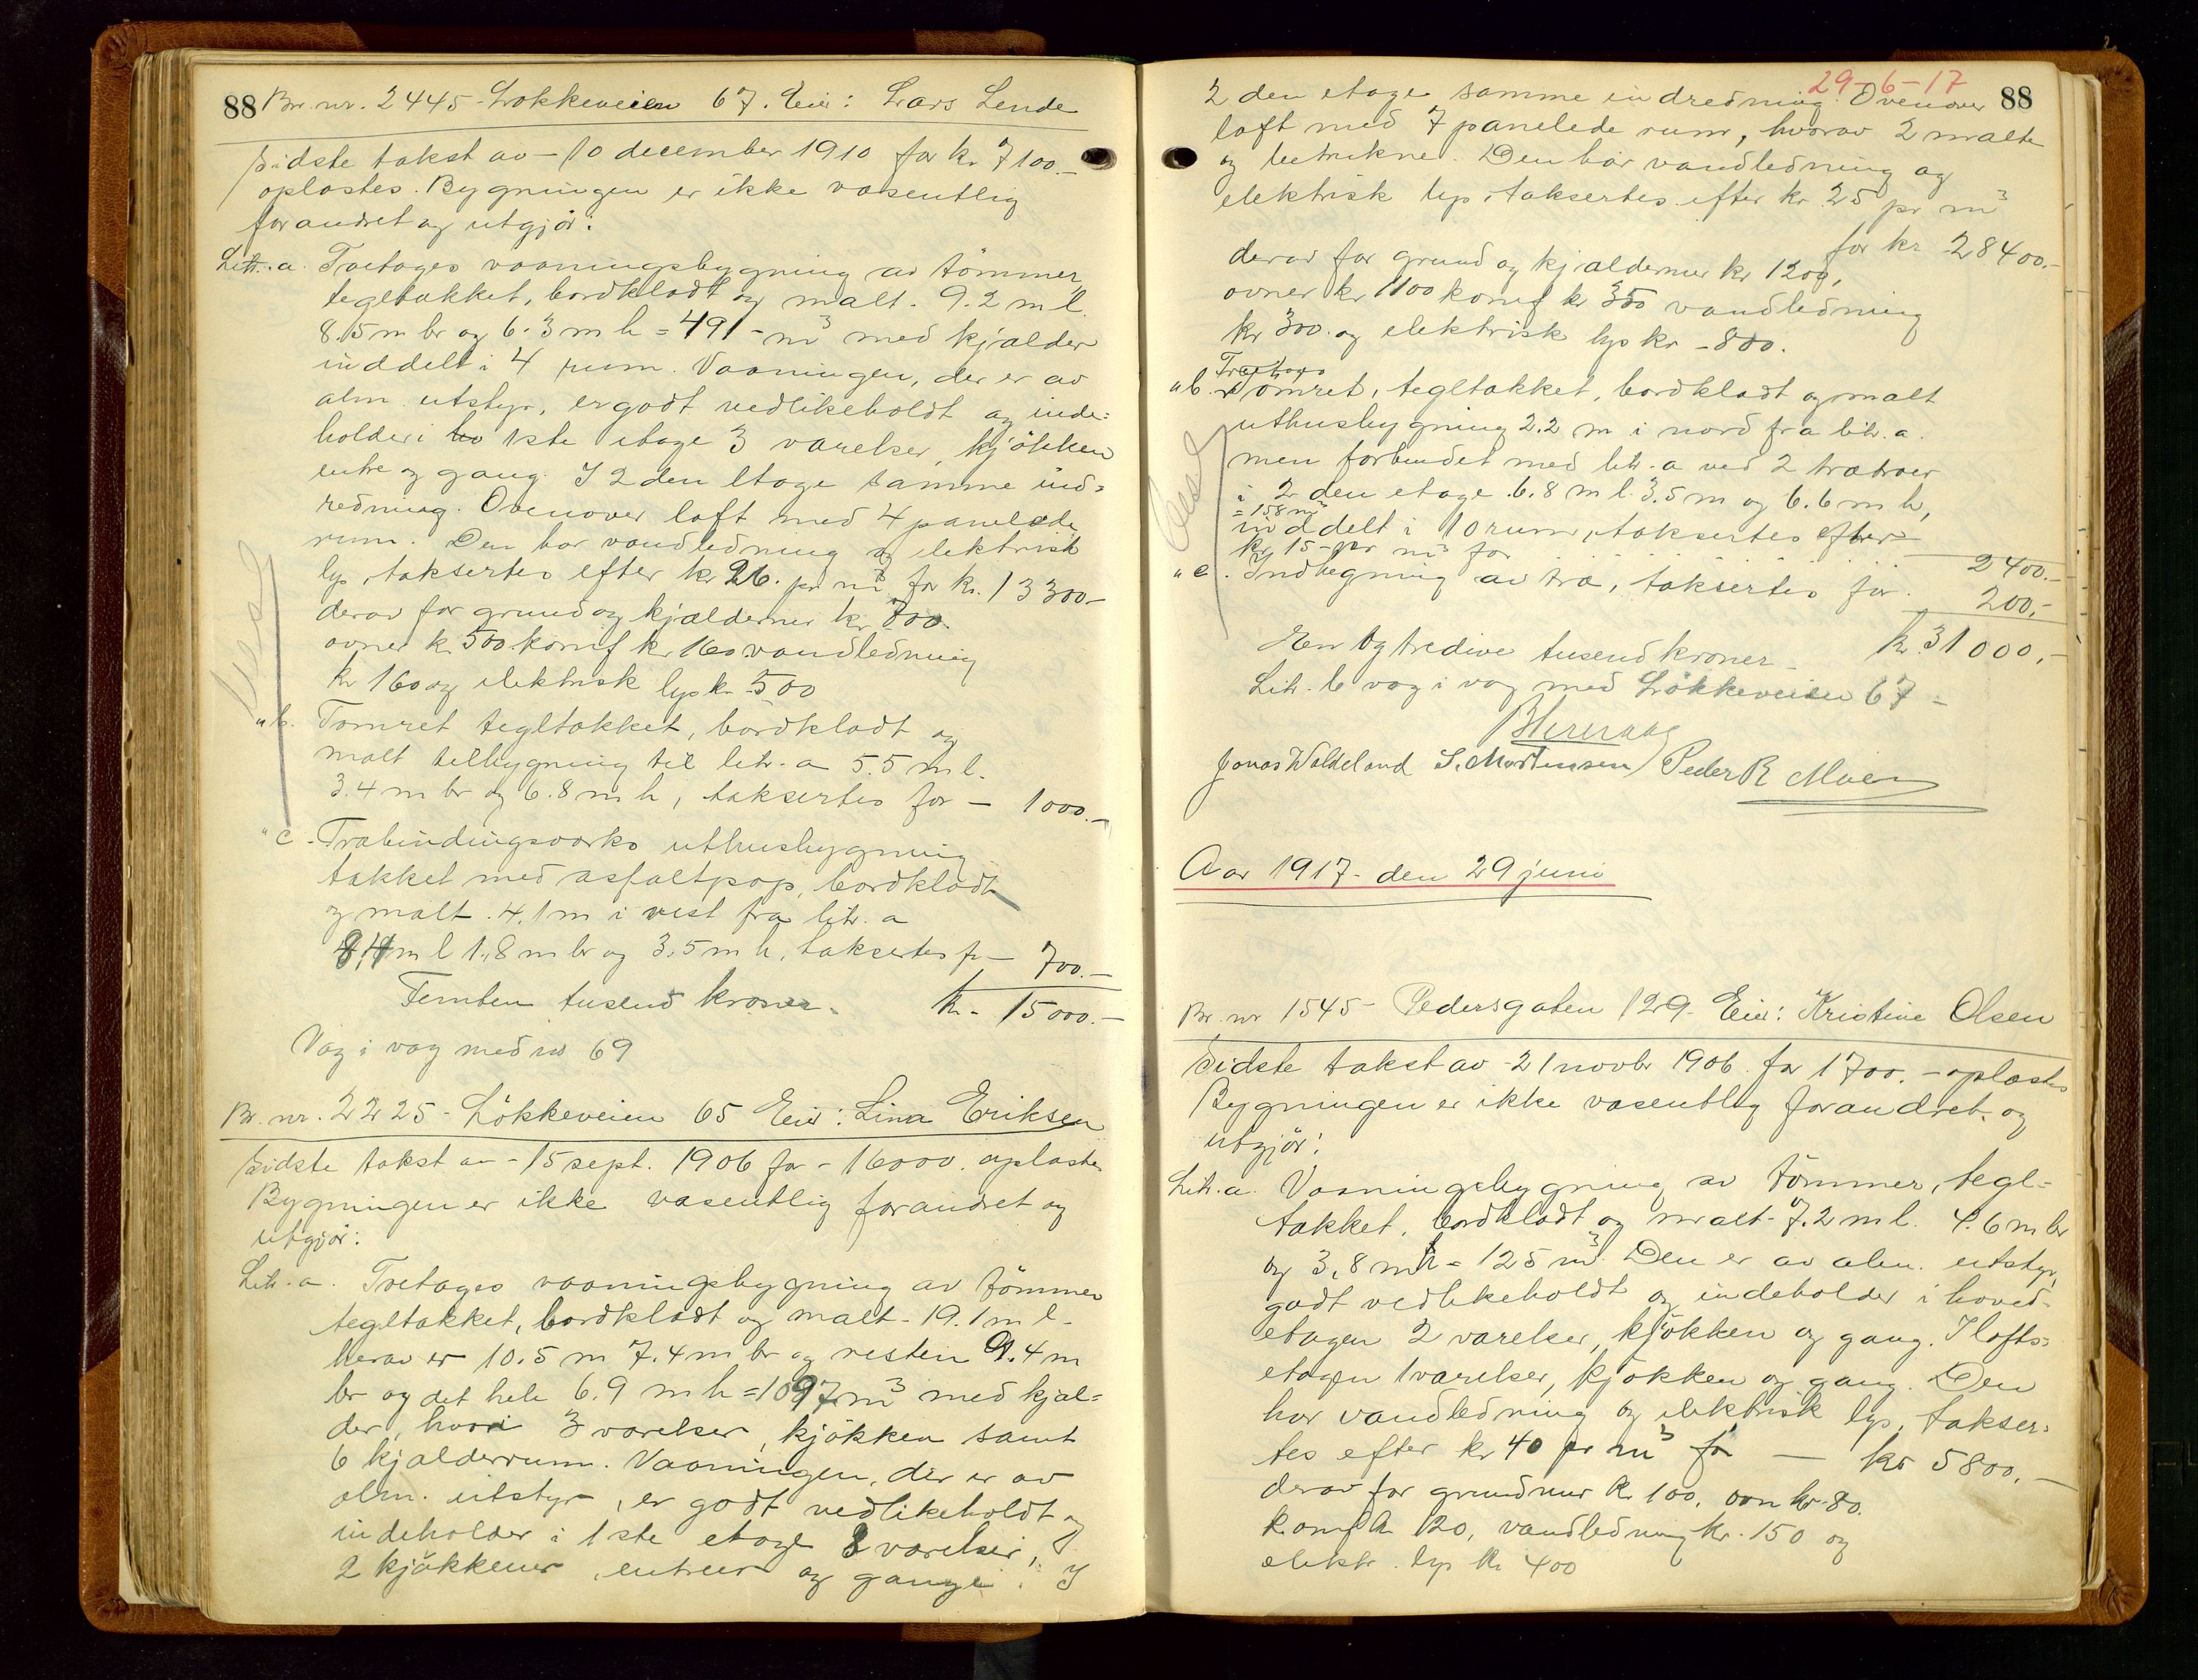 88 Br. nr. 2445 Løkkeveien 67. Eier: Lars Lende
Sidste takst av 10 december 1910 for kr. 7100.-
oplæstes. Bygningen er ikke væsentlig
forandret og utgjør:
Litr. a. Toetages vaaningsbygning av tømmer,
tegltækket, bordklædt og malt. 9.2 m l.
8.5 m br og 6.3 m h = 491 m³ med kjælder
inddelt i 4 rum. Vaaningen, der er av
alm. utstyr, er godt vedlikeholdt og inde=
holder i ho 1ste etage 3 værelser, kjøkken
entre og gang. I 2den etage samme ind=
redning. Ovenover loft med 4 panelede
rum. Den har vandledning og elektrisk
lys, taksertes efter kr 26. pr m³ for kr. 13300-
derav for grund og kjældermur kr 800.
ovner kr 500 komf kr 160 vandledning
kr 160 og elektrisk lys kr 500
" b. Tømret tegltækket, bordklædt og
malt tilbygning til litr. a 5.5 m l.
3.4 m br og 6.8 m h, taksertes for - 1000.-
" c. Træbindingsværks uthusbygning
tækket med asfaltpap, bordklædt
og malt. 4.1 m i vest fra litr. a
m l 1.8 m br og 3.5 m h, taksertes fr - 700.-
Femten tusend kroner. kr. 15000.-
Væg i væg med nr 69
Br. nr. 2225 - Løkkeveien 65 Eier: Lina Eriksen
Sidste takst av - 15 sept. 1906 for - 16000. oplæstes
Bygningen er ikke væsentlig forandret og
utgjør:
Litr. a. Toetages vaaningsbygning av tømmer
tegltækket, bordklædt og malt - 19.1 m l -
herav er 10.5 m 7.4 m br og resten 9.4 m
br og det hele 6.9 m h = 1097 m³ med kjæl=
der, hvori 3 værelser, kjøkken samt
6 kjælderrum. Vaaningen, der er av
alm. utstyr, er godt vedlikeholdt og
indeholder i 1ste etage 8 værelser,
2 kjøkkener, entreer og gange. I
29-6-17
2den etage samme indredning. Ovenover 88
loft med 7 panelede rum, hvorav 2 malte
og betrukne. Den har vandledning og
elektrisk lys, taksertes efter kr 25 pr m³
for kr 28400.-
derav for grund og kjældermur kr 1200,
ovner kr 1100 komf kr 350 vandledning
kr 300. og elektrisk lys kr - 800.
Toetages
" b. Tømret, tegltækket, bordklædt og malt
uthusbygning 2.2 m i nord fra litr. a.
men forbundet med litr. a ved 2 trætræer
i 2den etage. 6.8 m l. 3.5 m og 6.6 m h,
= 158 m³
inddelt i 10 rum, taksertes efter
kr 15- pr m³ for 2400.-
" c. Indhegning av træ, taksertes for. 200.-
En og tredive tusend kroner - kr. 31000.-
Litr. b væg i væg med Løkkeveien 67 -
Jonas Waldeland S. Mortensen Peder R Moen
Aar 1917 - den 29 juni
Br. nr 1545 - Pedersgaten 129 - Eier: Kristine Olsen
Sidste takst av - 21 novbr 1906 for 1700.- oplæstes
Bygningen er ikke væsentlig forandret og
utgjør:
Litr. a. Vaaningsbygning av tømmer, tegl=
tækket, bordklædt og malt - 7.2 m l. 4.6 m br
og 3,8 m h = 125 m³. Den er av alm. utstyr,
godt vedlikeholdt og indeholder i hoved=
etagen 2 værelser, kjøkken og gang. I lofts=
etagen 1 værelser, kjøkken og gang. Den
har vandledning og elektrisk lys, takser=
tes efter kr 40 pr m³ for - kr 5800.-
derav for grundmur kr 100. ovn kr. 80.
komf kr 120, vandledning kr. 150 og
elektr. lys kr 400